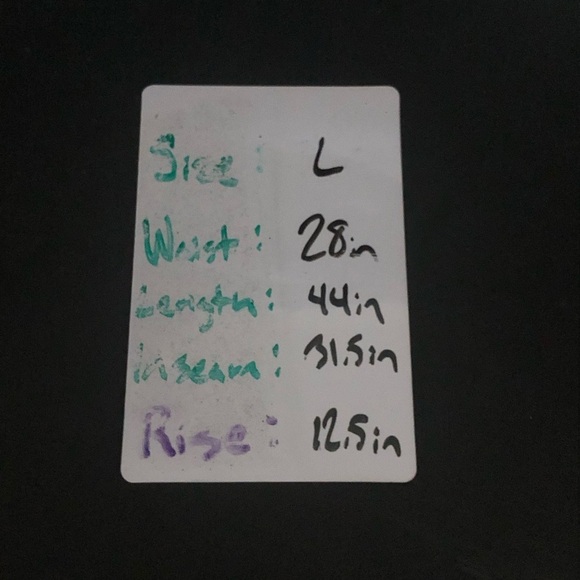 Size: L
Waist: 28in
Length: 44in
inseam: 31.5in
Rise: 12.5in